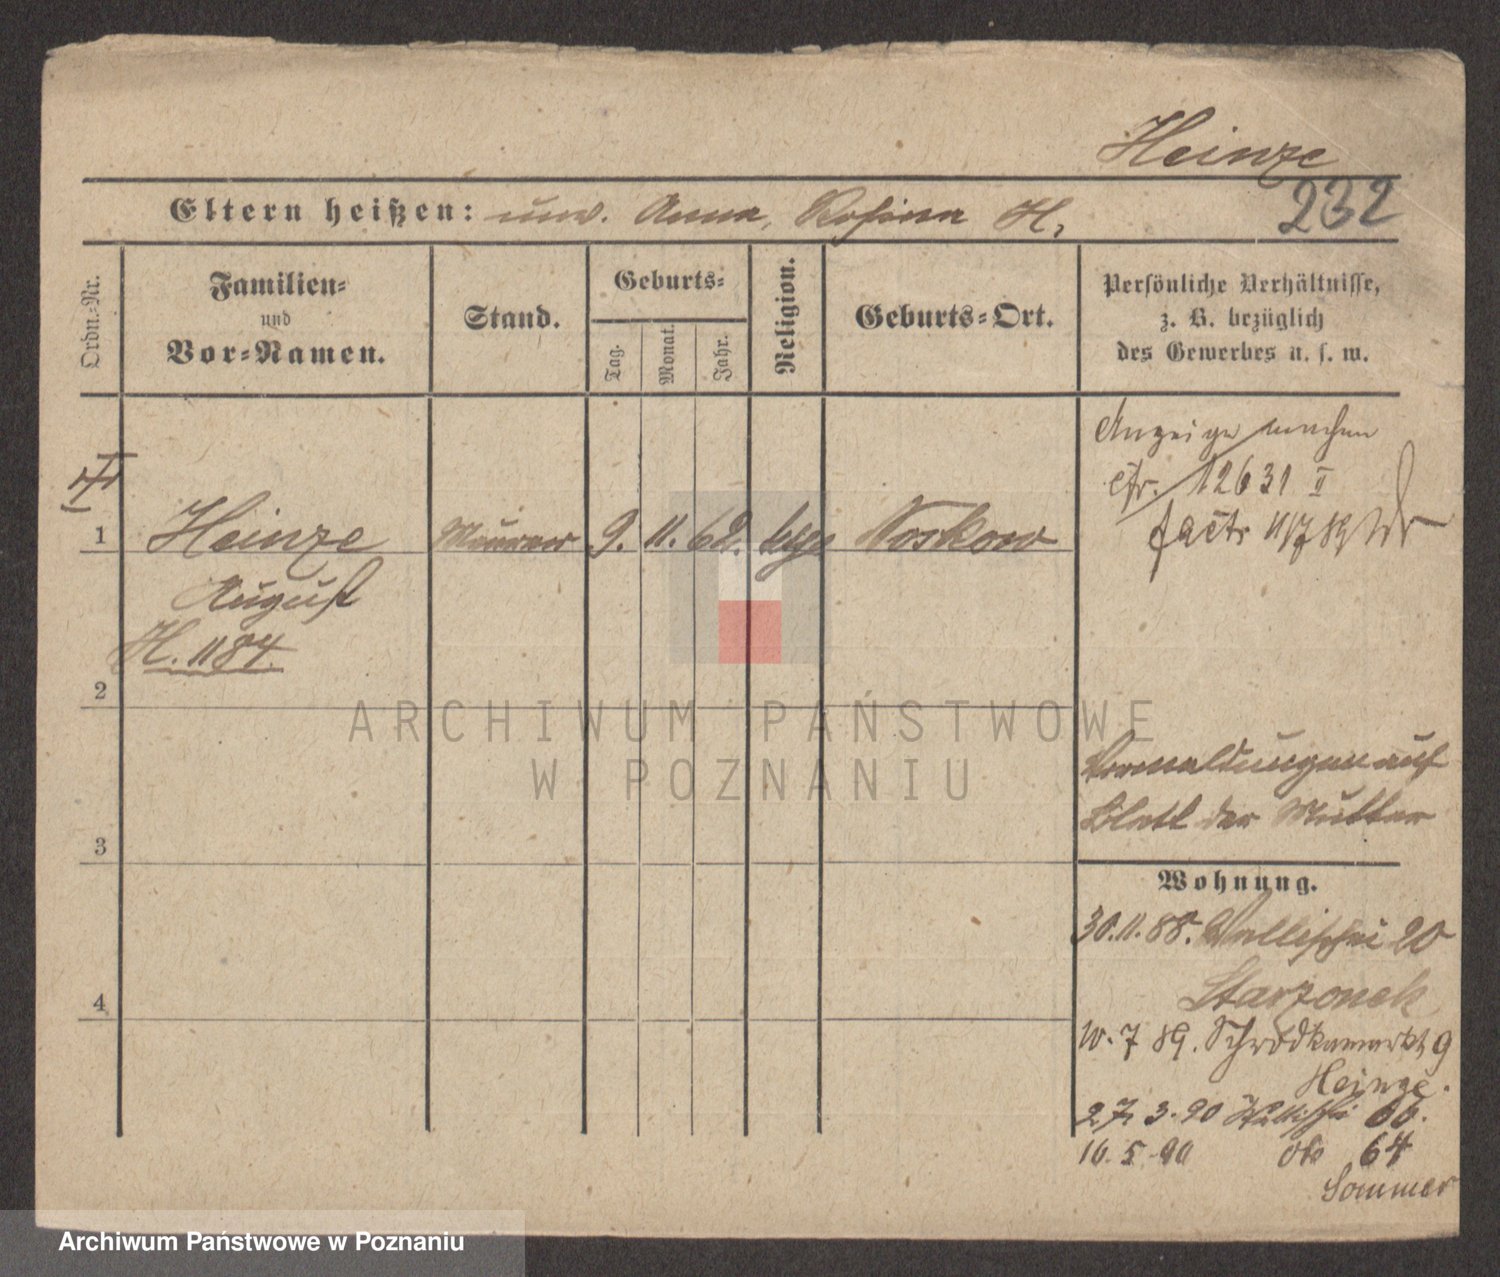 Heinze
232
Eltern heißen: unv. Anna, Rosina H.
Ordn.-Nr.
Familien-
und
Vor-Namen.
Stand.
Geburts-
Tag.
Monat.
Jahr.
Religion.
Geburts-Ort.
Persönliche Verhältnisse,
z. B. bezüglich
des Gewerbes u. s. w.
Anzeige machen
cfr. 12631 II
1
Heinze Maurer 9. 11. 62. Noskow
August
H. 1184.
2
3
4
Vermeldungen auf
Blatt der Mutter
Wohnung.
30.11.88. Wallischei 20
Starzonek
10.7 89. Schrodkamarkt 9
Heinze.
27. 3. 90 Wallischei 66.
16.5.90 64
Sommer
ARCHIWUM PAŃSTWOWE
W POZNANIU
Archiwum Państwowe w Poznaniu